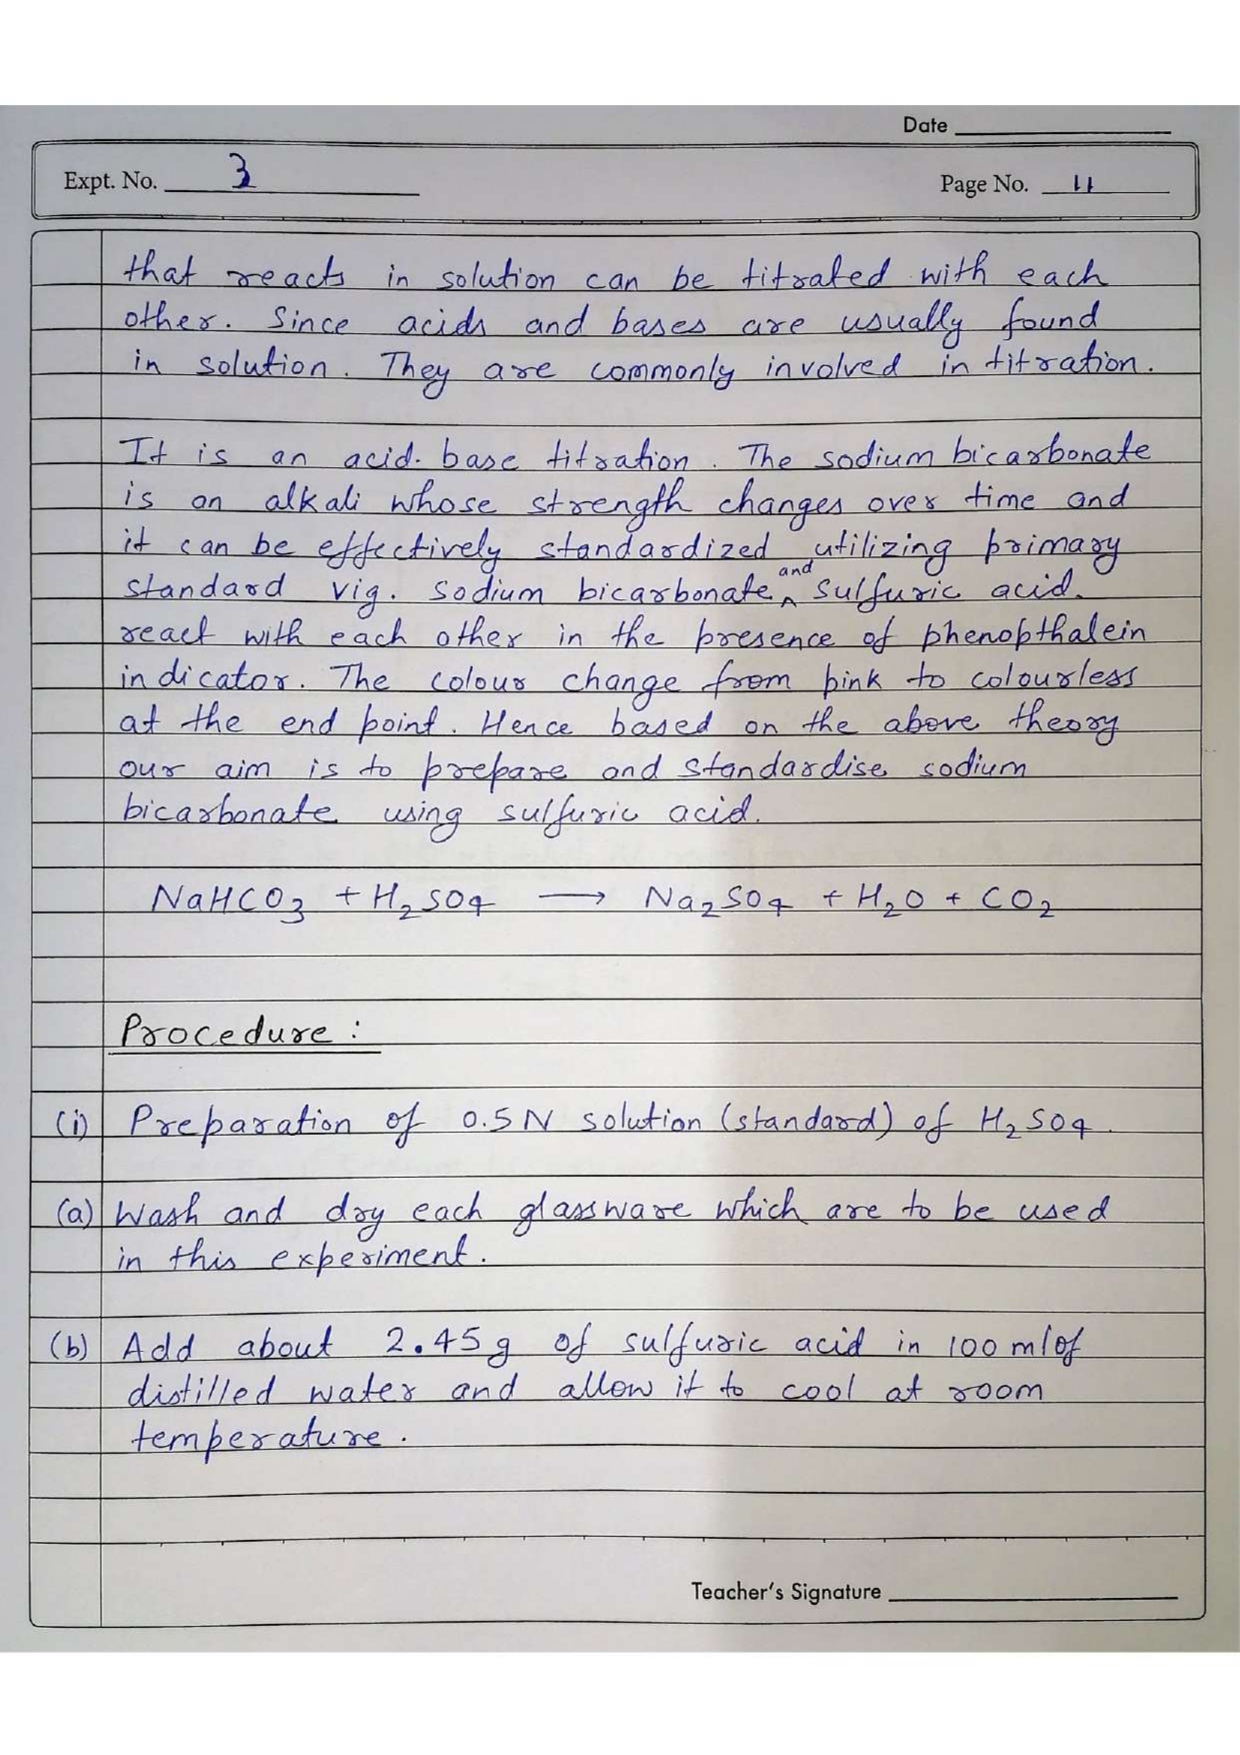 Date
Expt. No. 3
Page No. 11
that reacts in solution can be titrated with each
other. Since acids and bases are usually found
in solution. They are commonly involved in titration.
It is an acid-base titration. The sodium bicarbonate
is an alkali whose strength changes over time and
it can be effectively standardized utilizing primary
standard vig. sodium bicarbonate and sulfuric acid.
react with each other in the presence of phenopthalein
indicator. The colour change from pink to colourless
at the end point. Hence based on the above theory
our aim is to prepare and standardise sodium
bicarbonate using sulfuric acid.
NaHCO3 + H2SO4 → Na2SO4 + H2O + CO2
Procedure :
(i) Preparation of 0.5 N solution (standard) of H2SO4.
(a) Wash and dry each glassware which are to be used
in this experiment.
(b) Add about 2.45g of sulfuric acid in 100 ml of
distilled water and allow it to cool at room
temperature.
Teacher's Signature